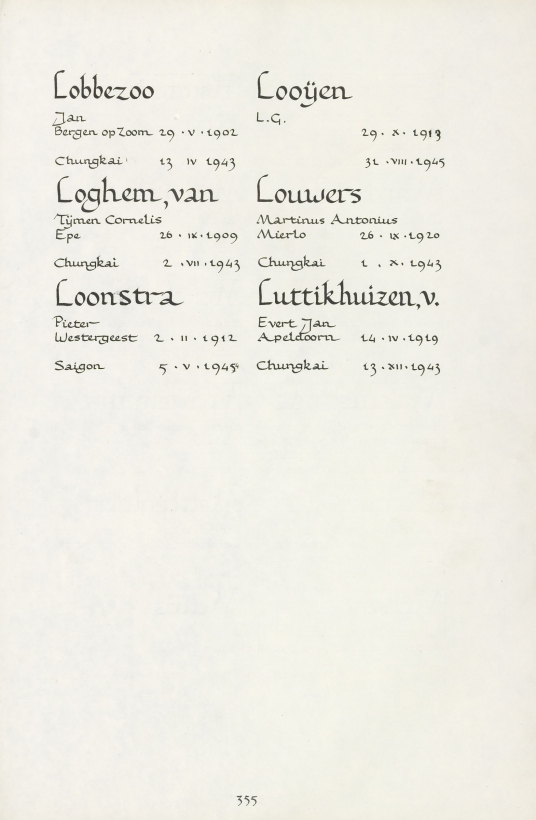 Lobbezoo
Jan
Bergen op Zoom 29 · V · 1902
Chungkai 13 IV 1943
Loghem, van
Tijmen Cornelis
Epe 26 · IX · 1909
Chungkai 2 · VII · 1943
Loonstra
Pieter
Westergeest 2 · II · 1912
Saigon 5 · V · 1945
Looÿen
L.G.
29 · X · 1913
31 · VIII · 1945
Louwers
Martinus Antonius
Mierlo 26 · IX · 1920
Chungkai 1 . X · 1943
Luttikhuizen, v.
Evert Jan
Apeldoorn 14 · IV · 1919
Chungkai 13 · XII · 1943
355